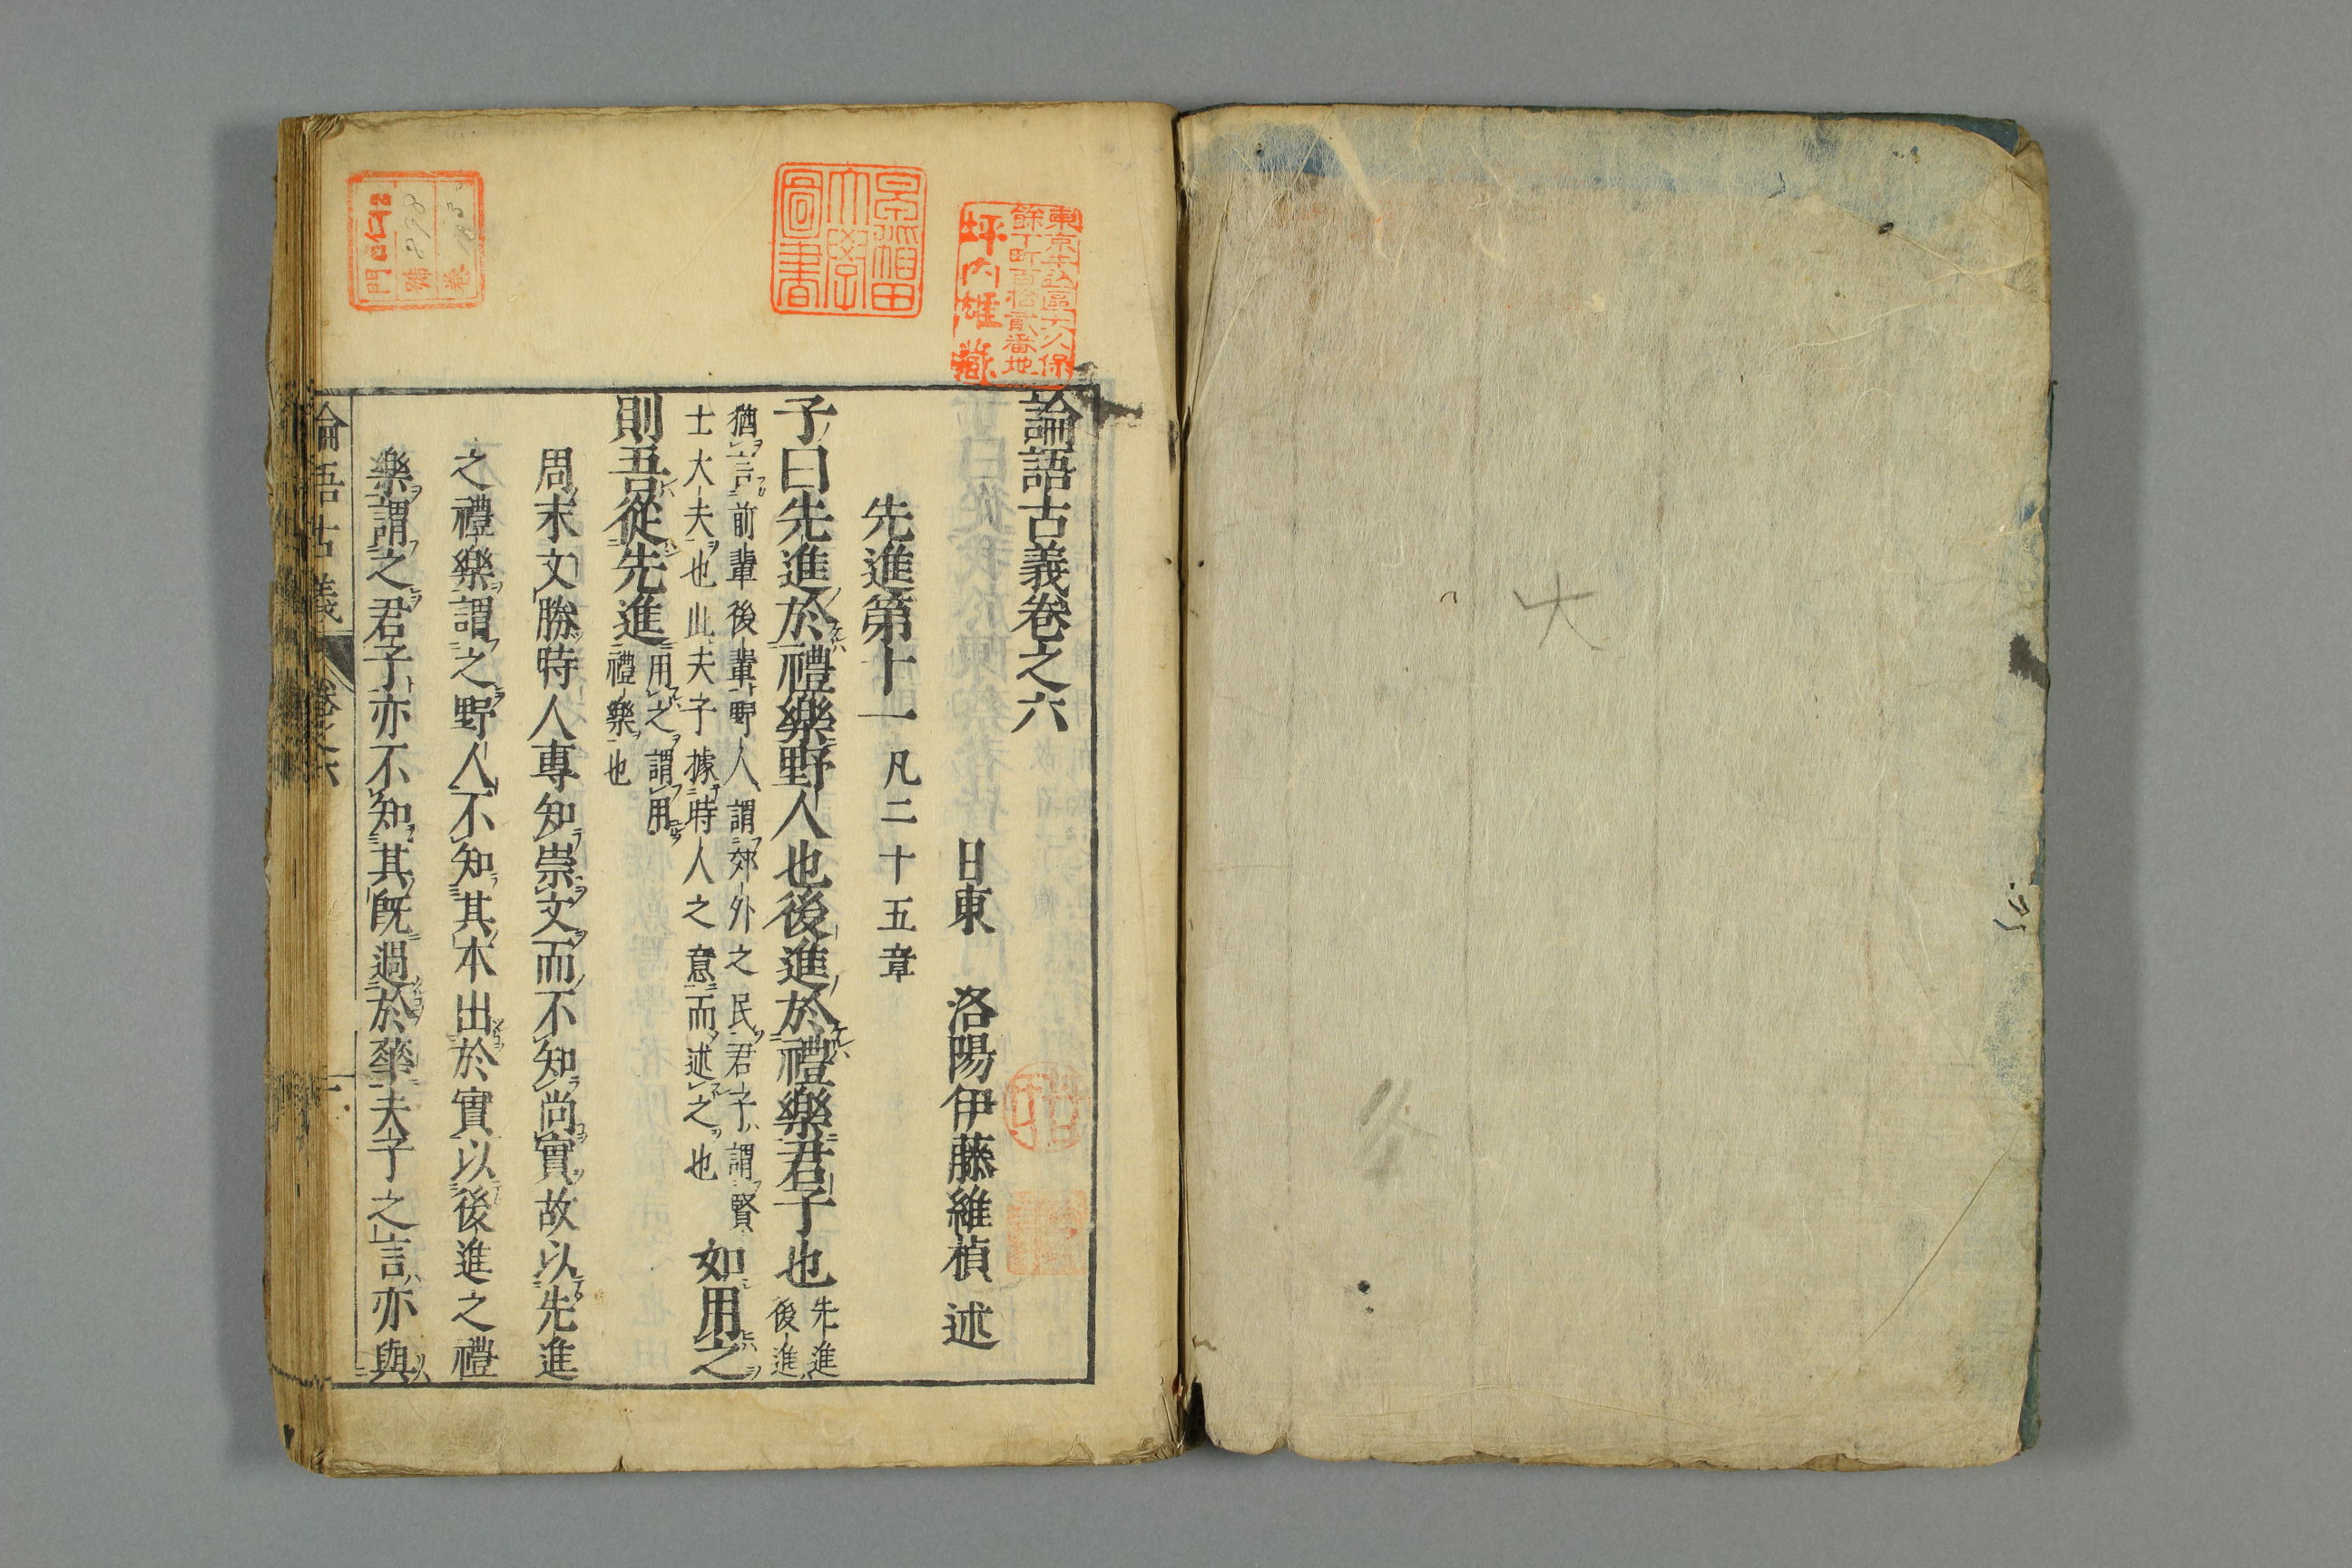 論語古義卷之六
日東　洛陽伊藤維楨　述
先進第十一凡二十五章
子曰先進於禮樂野人也後進於禮樂君子也先進後進
猶言前輩後輩野人謂郊外之民君子謂賢
士大夫也此夫子據時人之意而述之也如用之
則吾從先進用之謂用禮樂也
周末文勝時人專知崇文而不知尚實故以先進
之禮樂謂之野人不知其本出於實以後進之禮
樂謂之君子亦不知其既過於華夫子之言亦與
論語古義　卷之六
東京牛込區大久保
餘丁町百拾貳番地
坪内雄藏
早稲田
大學
圖書
門
號 898
卷